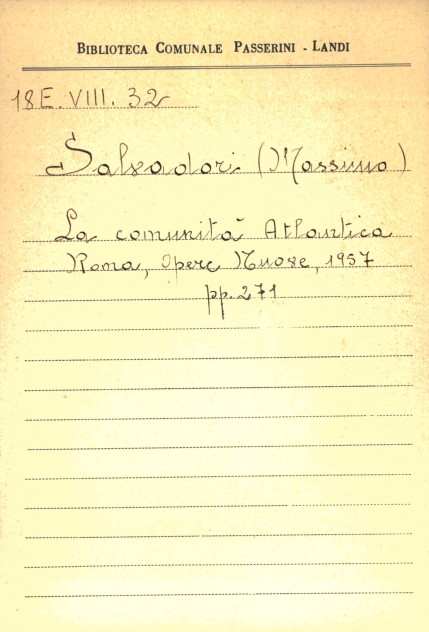 BIBLIOTECA COMUNALE PASSERINI - LANDI
18E. VIII. 32
Salvadori (Massimo)
La comunità Atlantica
Roma, Opere Nuove, 1957
pp. 271